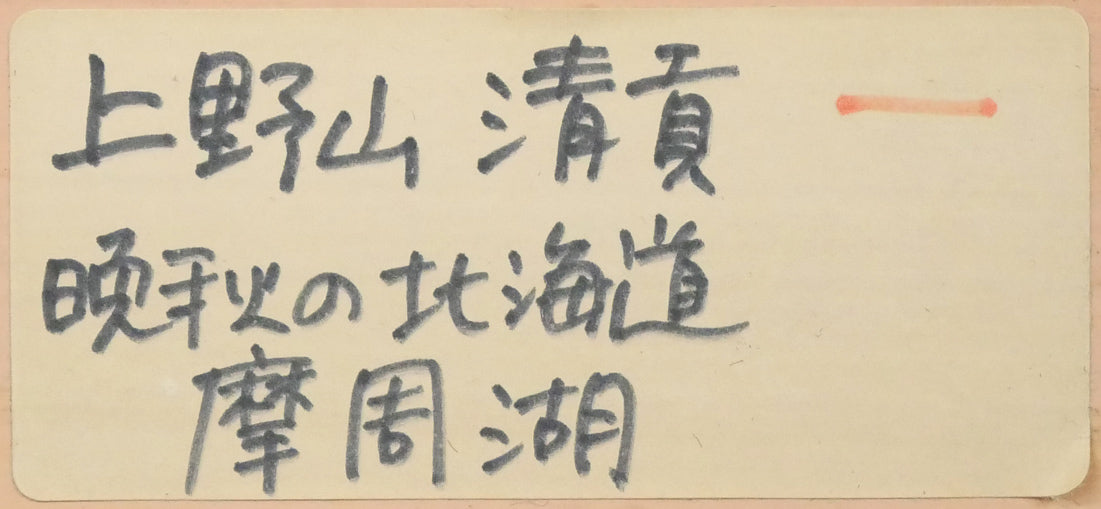 上野山 清貢
晩秋の北海道
摩周湖